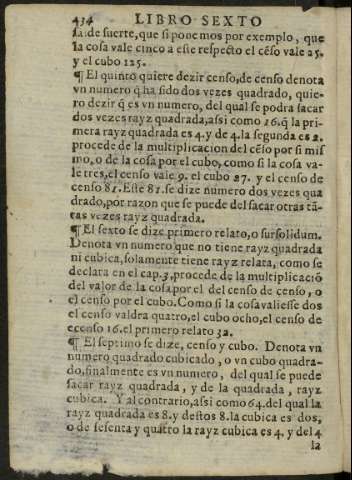 434 LIBRO SEXTO
sa de suerte, que si ponemos por exemplo, que
la cosa vale cinco a este respecto el cẽso vale 25.
y el cubo 125.
¶ El quinto quiere dezir censo, de censo denota
vn numero q̃ ha sido dos vezes quadrado, quie-
ro dezir q̃ es vn numero, del qual se podra sacar
dos vezes rayz quadrada, assi como 16. q̃ la pri
mera rayz quadrada es 4. y de 4. la segunda es 2.
procede de la multiplicacion del cẽso por si mis
mo, o de la cosa por el cubo, como si la cosa va-
le tres, el censo vale 9. el cubo 27. y el censo de
censo 81. Este 81. se dize numero dos vezes qua
drado, por razon que se puede del sacar otras tã-
tas vezes rayz quadrada.
¶ El sexto se dize primero relato, o sursolidum.
Denota vn numero que no tiene rayz quadrada
ni cubica, solamente tiene rayz relata, como se
declara en el cap. 3, procede de la multiplicaciõ
del valor de la cosa por el del censo de censo, o
el censo por el cubo. Como si la cosa valiesse dos
el censo valdra quatro, el cubo ocho, el censo de
ecenso 16. el primero relato 32.
¶ El septimo se dize, censo y cubo. Denota vn
numero quadrado cubicado, o vn cubo quadra-
do, finalmente es vn numero, del qual se puede
sacar rayz quadrada, y de la quadrada, rayz
cubica. Y al contrario, assi como 64. del qual la
rayz quadrada es 8. y destos 8. la cubica es dos,
o de sesenta y quatro la rayz cubica es 4. y del 4
la